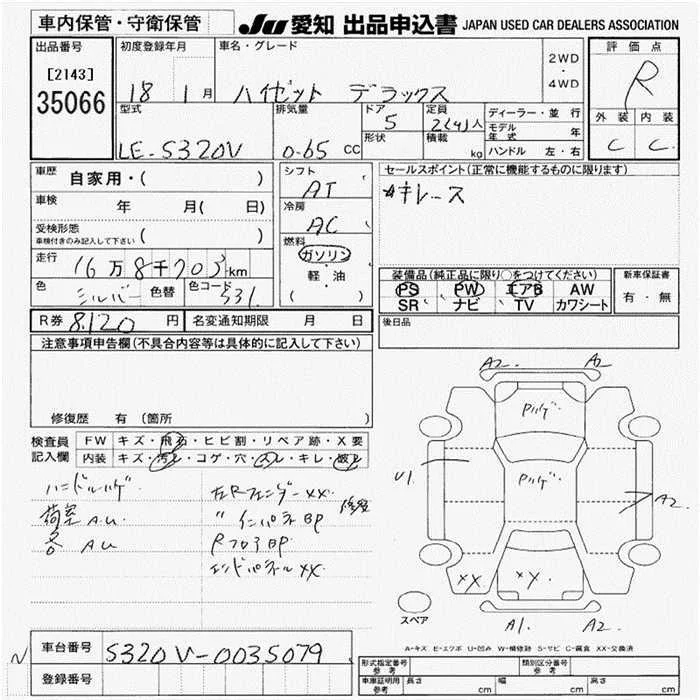 車内保管・守衛保管
JU 愛知 出品申込書 JAPAN USED CAR DEALERS ASSOCIATION
出品番号
[2143]
35066
初度登録年月
18 1 月
車名・グレード
ハイゼット デラックス
2WD
・
4WD
評価点
R
外装 内装
C C
型式
LE-S320V
排気量
0.65 CC
ドア
5
形状
定員
2(4)人
積載
kg
ディーラー・並行
モデル年式 年
ハンドル 左・右
車歴
自家用・( )
車検 年 月( 日)
受検形態
車検付きのみ記入して下さい ( )
走行 16万8千703km
色 シルバー 色替 色コード S31
シフト
AT
冷房
AC
燃料
ガソリン
軽・油
( )
セールスポイント(正常に機能するものに限ります)
*キレース
装備品(純正品に限り○をつけてください)
PS PW エアB AW
SR ナビ TV カワシート
新車保証書
有・無
R券 8,120 円 名変通知期限 月 日
後日品
注意事項申告欄(不具合内容等は具体的に記入して下さい)
修復歴 有 〔箇所 〕
検査員記入欄
FW キズ・飛石・ヒビ割・リペア跡・X要
内装 キズ・汚レ・コゲ・穴・スレ・キレ・破レ
ハンドルハゲ
荷室 A.U.
各 AU
左Rフェンダー XX.
〃 インパネ BP 修復
Rフロア BP.
エンドパネル XX.
A2. A2
Pハゲ.
Pハゲ.
U1.
A2.
XX
XX.
スペア
A1. A2.
A-キズ E-エクボ U-凹み W-補修跡 S-サビ C-腐食 XX-交換済
車台番号 S320V-0035079
登録番号
形式指定番号
参考
類別区分番号
参考
車庫証明用
参考
長さ cm 幅 cm 高さ cm